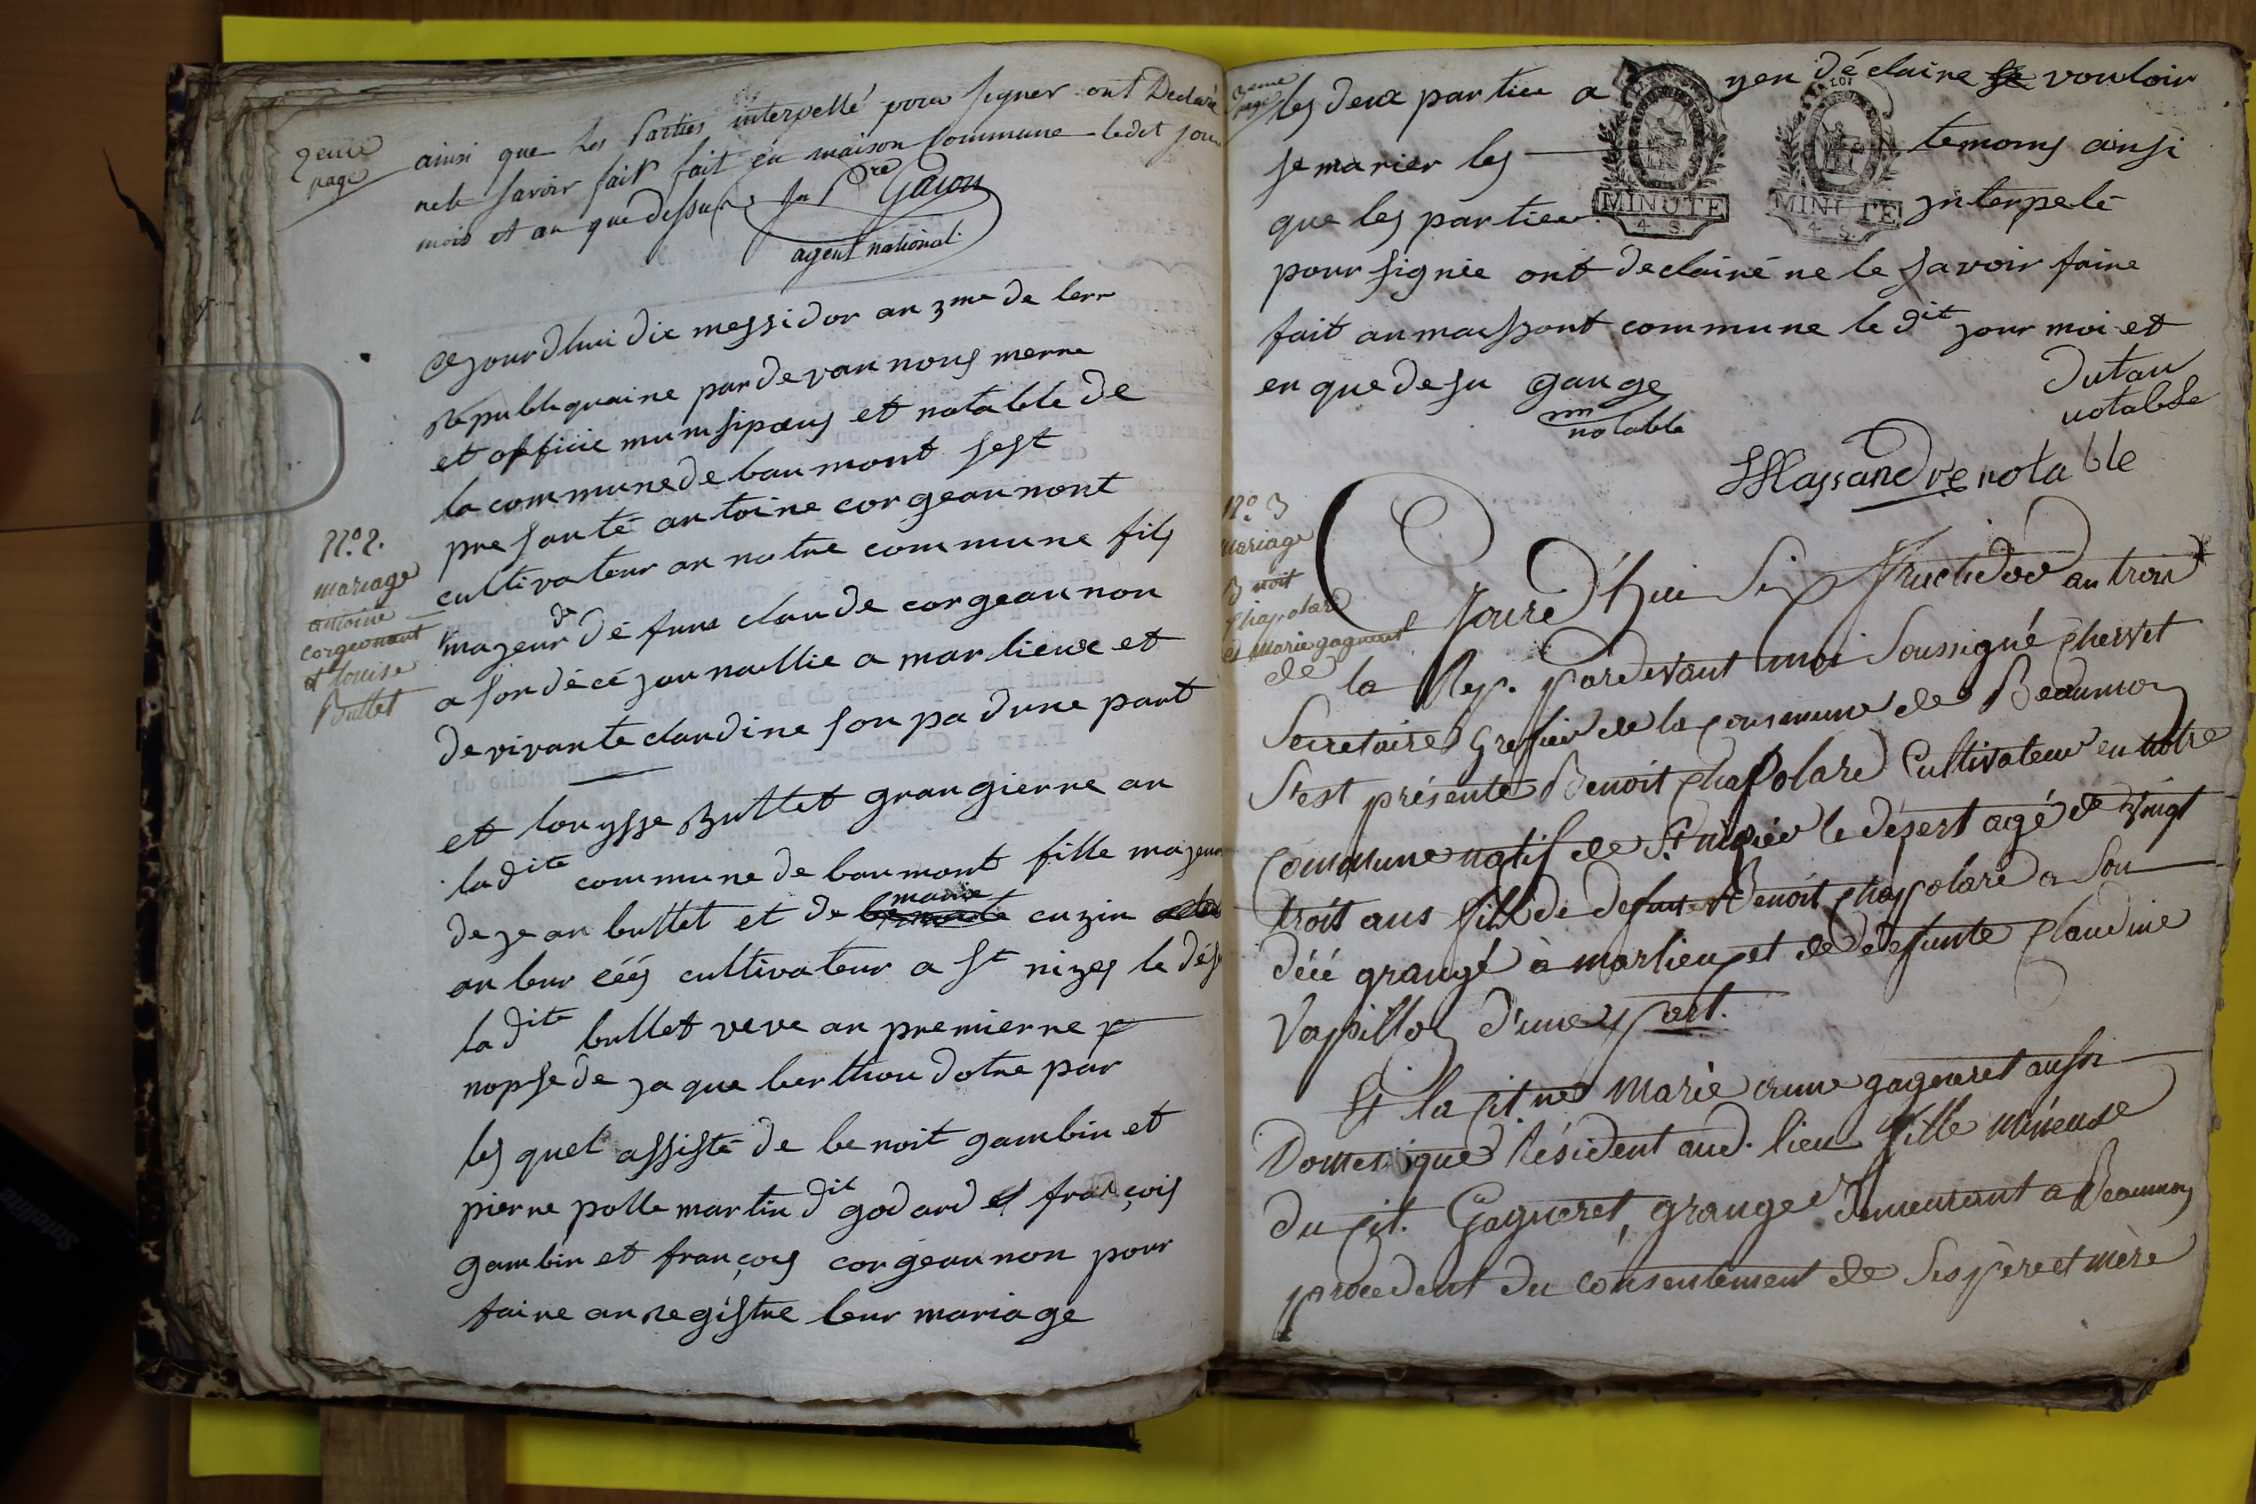 2eme
page
ainsi que les Parties interpellé pour signer ont Declaré
ne le savoir fait fait en maison Commune ledit jour
mois et an que dessus
Gacon
agent national
cejourdhui dix messidor an 3me de lerr
Republiquaine pardevan nous merre
et officie munisipaus et notable de
la commune de baumont sest
presanté antoine corgeaunont
cultivateur an notre commune fils
majeur de funs claude corgeaunon
a son décé journallie a marlieux et
de vivante claudine son pa dune part
N.o 2.
mariage
antoine
corgeonant
et Louise
Buttet
et louysse Buttet grangierre an
ladite commune de baumont fille majeur
de jean buttet et de marie cuzin
an leur céés cultivateur a St nizes le dés
ladite buttet veve an premierre
nopse de jaque berthou dotre par
les quel assisté de benoit gambin et
pierre polle martin dit godard et françois
gambin et françois corgeaunon pour
faire anregistre leur mariage
3eme
page
les deux partiee a yen déclaire vouloir
se marier les temoins ainsi
que les partiee interpelé
MINUTE
4. S.
MINUTE
4. S.
pour signée ont declairé ne le savoir faire
fait an maissont commune le dit jour moi et
en que desu gauge
notable
dutau
notable
Massandre notable
N.o 3
mariage
Benoit
Chapolard
et Marie gagneret
Ce Jourd'hui Six Fructidor an trois
de la Rep. pardevant moi Soussigné Chervet
Secretaire Grefier de la commune de Beaumon
S'est présenté Benoit Chapolard Cultivateur en notre
Commune natif de St. nizier le désert agé de vingt
trois ans fils de defunt Benoit Chapolard a Son
décé grangé à marlieu et de defunte Claudine
Vapillon d'une part.
Et la Cit.ne Marie anne gagneret aussi
Domestique Résident aud. lieu fille mineuse
du Cit. Gagneret, granger demeurant a Beaumon
procedent du consentement de Ses père et mère